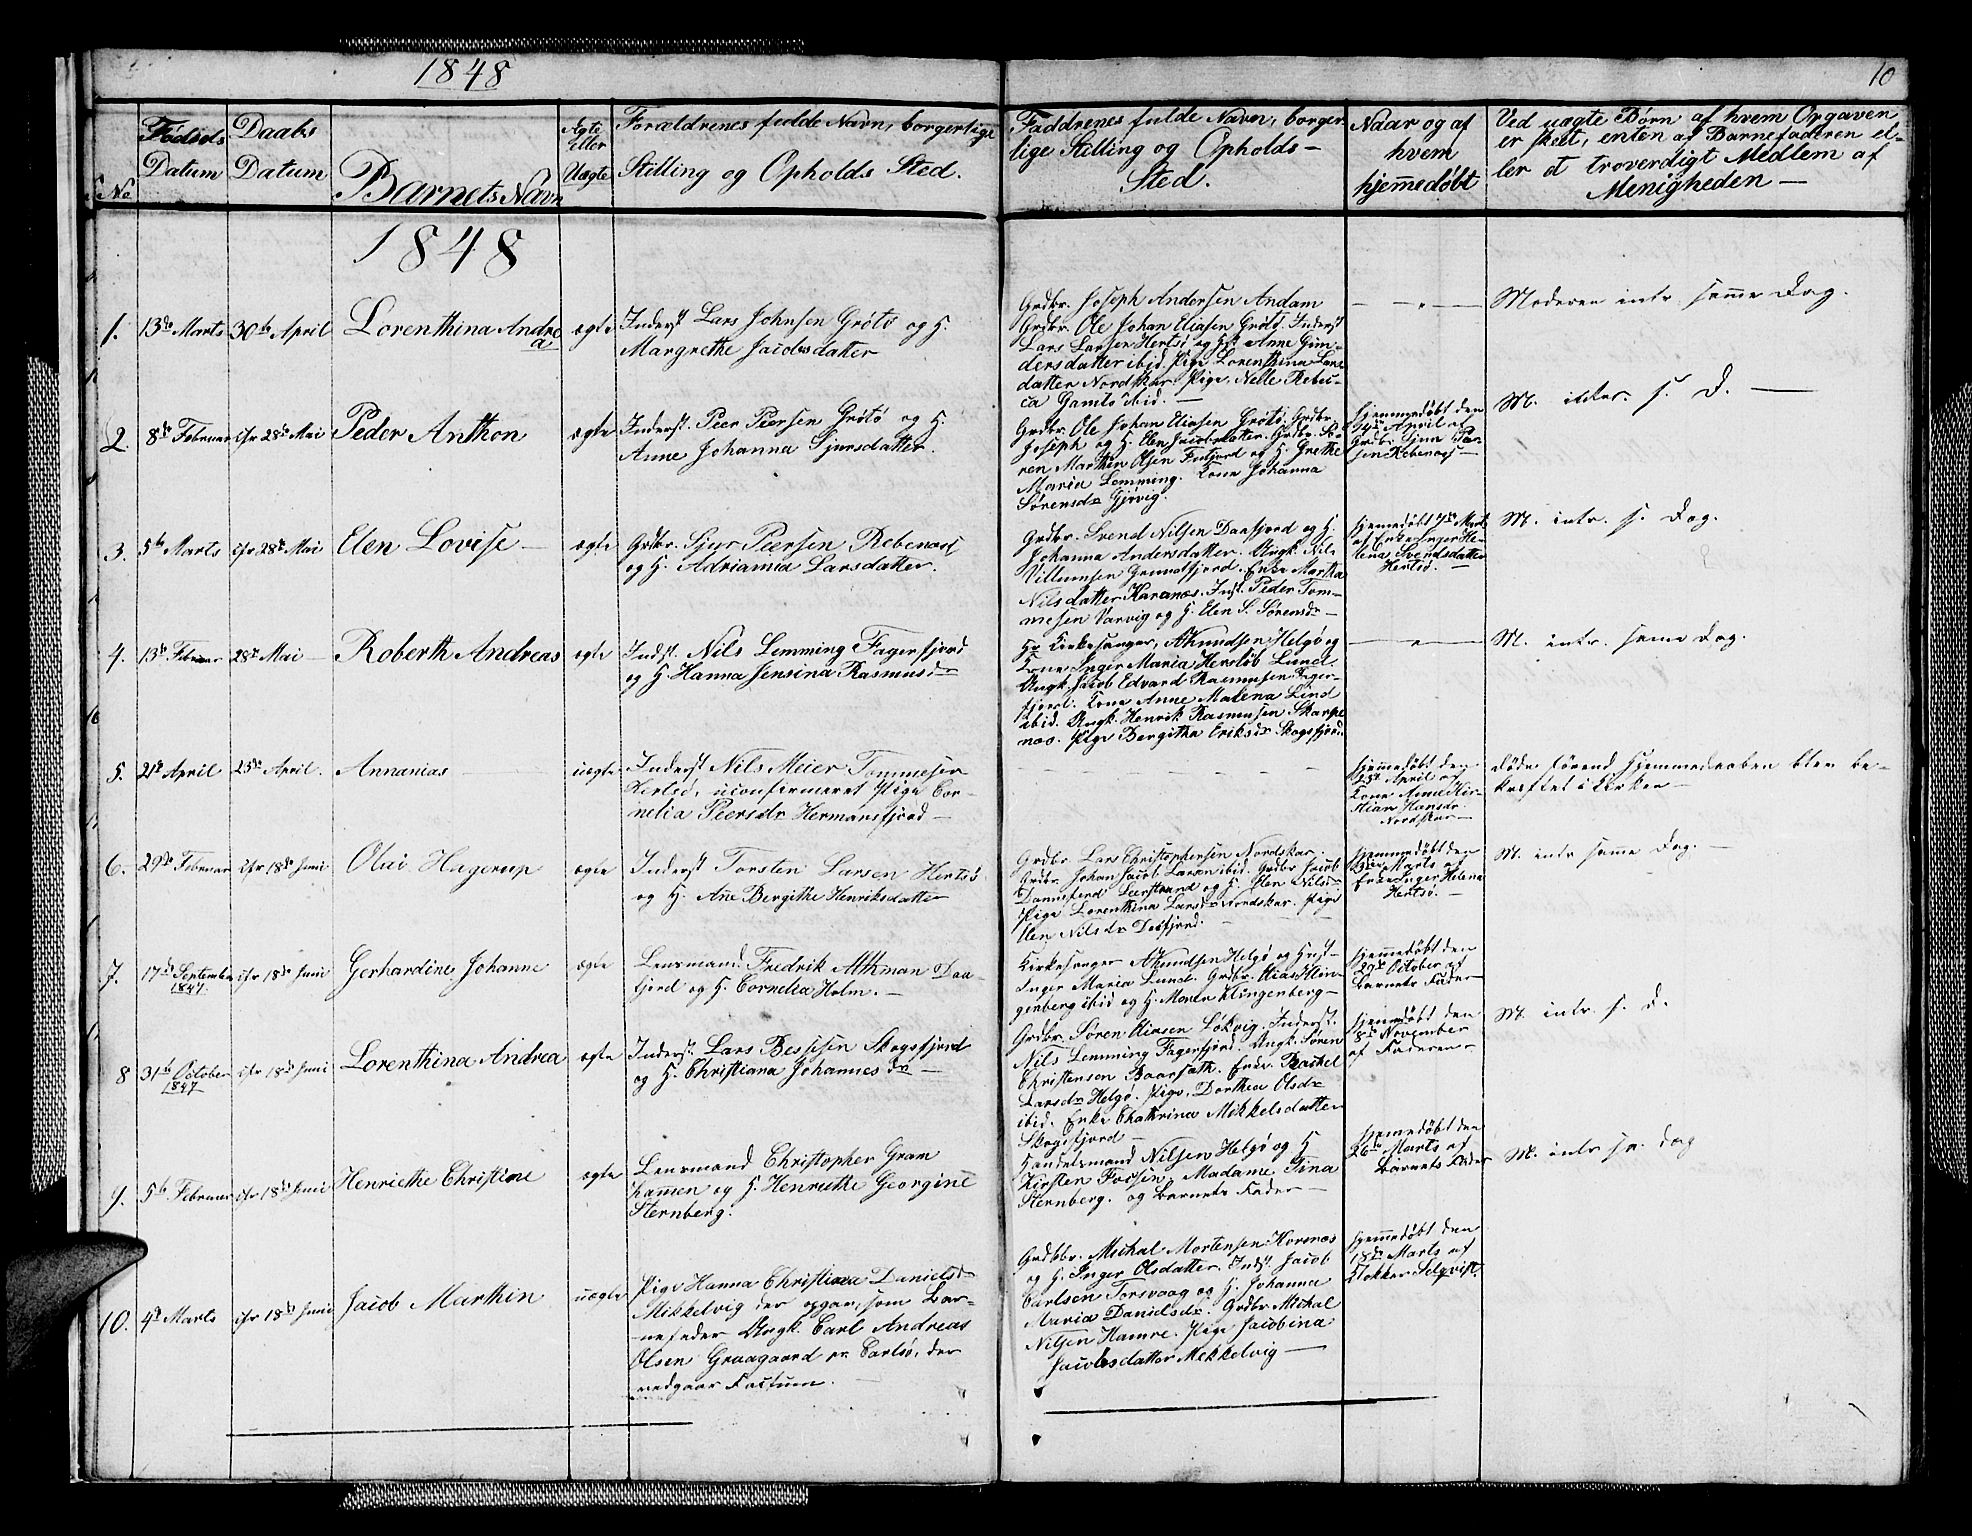 1848
10
No
Fødsels Datum
Daabs Datum
Barnets Navn
Ægte Eller Uægte
Forældrenes fulde Navn, borgerlige
Stilling og Opholds Sted.
Faddrenes fulde Navn, borger
lige Stilling og Opholds-
Sted.
Naar og af
hvem
hjem̅edøbt
Ved uægte Børn af hvem Opgaven
er skeet, enten af Barnefaderen el-
ler et troverdigt Medlem af
Menigheden —
1848
1.
13de Marts
30te April
Lorenthina Andre
a
ægte
Inderst Lars Johnsen Grøtø og H.
Margrethe Jacobsdatter
Grdbr. Joseph Andersen Andam
Grdbr. Ole Johan Eliasen Grøtø. Inderst
Lars Larsen Hertsø og H. Anne Gun-
dersdatter ibid. Pige Lorenthina Lars
datter Nordskar. Pige, Nelle Rebec-
ca Gamts ibid. —
— " —
Moderen intr. samme Dag.
2.
8de Februar
cfr 28de Mai
Peder Anthon
ægte
Inderst. Peer Peersen Grøtø og H.
Anne Johanna Sjursdatter.
Grdbr. Ole Johan Eliasen Grøtø. Grdbr.
Joseph og H. Elen Jacobsdatter. Grdbr. Sø-
ren Marthin Olsen Futfjord og H. Grethe
Maria Lemming. Kone Johanna
Sørensdr Gjøvig.
Hjemmedøbt den
14de April af
Grdb. Sjur Peer-
sen Rebenæs —
M. inter. s. D. —
3.
5te Marts
cfr 28de Mai
Elen Lovise —
ægte
Grdbr. Sjur Peersen Rebenæs
og H. Adriamia Larsdatter.
Grdbr. Svend Nilsen Daafjord og H.
Johanna Andersdatter. Ungk. Nils
Villumsen Grunnfjord. Enke Martha
Nilsdatter Karanæs. Inds. Peder Tom-
mesen Varvig og H. Elen S. Sørensdr —
Hjemmedøbt 7de Marts
af Enke Inger He-
lena Svendsdatter
Hertsø. —
M. intr. s. Dag.
4.
13de Februar
28de Mai —
Roberth Andreas
ægte
Indst. Nils Lemming Fagerfjord
og H. Hanna Jensina Rasmusdr
Hr Kirkesanger, AKnudsen Helgø og
Kone Inger Maria Hersløb Lund.
Ungk. Jacob Edvard Rasmusen Fager-
fjord. Kone Anne Malena Lind
ibid. Ungk. Henrik Rasmusen Skarpe
næs. Pige Bergitha Eriksdr Skogsfjord.
— " —
M. intr. samme Dag.
5.
21de April
23de April.
Annanias —
uægte
Inderst Nils Meier Tommesen
Hertsø, uconfirmeret Pige Cor-
nelia Peersdr Hermansfjord —
— — — — — —
Hjemmedøbt den
23de April af
Kone Anne
Hansdr
Nordskar —
Døde førend Hjemmedaaben blev be-
kræftet i Kirken —
6.
29de Februar
cfr 18de Juni
Olai Hagerup
ægte
Inderst Torsten Larsen Hertsø
og H. Ane Bergithe Henriksdatter
Grdbr Lars Christophersen Nordskar.
Grdbr. Johan Jacob Larsen ibid. Grdbr Jacob
Danneferd Leerstrand og H. Elen Nilsdr
Pige Lorenthina Larsdr Nordskar. Pige
Elen Nilsdr Daafjord.
Hjemmedøbt den
Marts af
Enke Inger Helena
Hertsø. —
M. intr samme Dag. —
7.
17de September
1847.
cfr 18de Juni
Gerhardine Johanne
ægte
Lensmand. Fredrik Altman Daa-
fjord og H. Cornelia Holm. —
Kirkesanger AKnudsen Helgø og Hust-
Inger Maria Lund. Grdbr. Elias Klin-
genberg ibid og H. Maren Klingenberg —
Hjemmedøbt den
29de October af
Barnets Fader
8
31te October
1847
cfr 18de Juni
Lorenthina Andrea
ægte
Inderst. Lars Bessesen Skogsfjord
og H. Christiana Johannesdr —
Grdbr. Søren Eliasen Løkvig. Inderst.
Nils Lemming Fagerfjord. Ungk. Søren
Christensen Baarsæth. Enke Rachel
Larsdr Helgø. Pige, Dorthea Olsdr
ibid. Enke Chathrina Mikkelsdatter
Skogsfjord —
Hjemmedøbt den
8de November
af Faderen —
M. intr. s. D.
9.
5te Februar
cfr 18de Juni
Henriethe Christine
ægte
Lensmand Christopher Gram
Hammen og H. Henriette Georgine
Sternberg.
Handelsmand Nilsen Helgø og H
Kirsten Figsen. Madame, Tina
Sternberg. og Barnets Fader —
Hjemmedøbt den
26de Marts af
Barnets Fader
M. intr sa. Dag
10.
4de Marts
cfr 18de Juni
Jacob Marthin
uægte
Pige Hanna Christiana Danielsdr
Mikkelvig der opgav, som Bar-
nefader Ungk. Carl Andreas
Olsen Graagaard pr. Carlsø, der
vedgaar Factum. —
Grdbbr. Mikal Mortensen Horsnæs
og H. Inger Olsdatter. Indst. Jacob
Carlsen Torsvaag og H. Johanna
Maria Danielsdr. Grdbr Mikal
Nilsen Hamre. Pige Jacobina
Jacobsdatter Mekkelvig —
Hjemmedøbt den
18de Marts af
Klokker Selqvist.